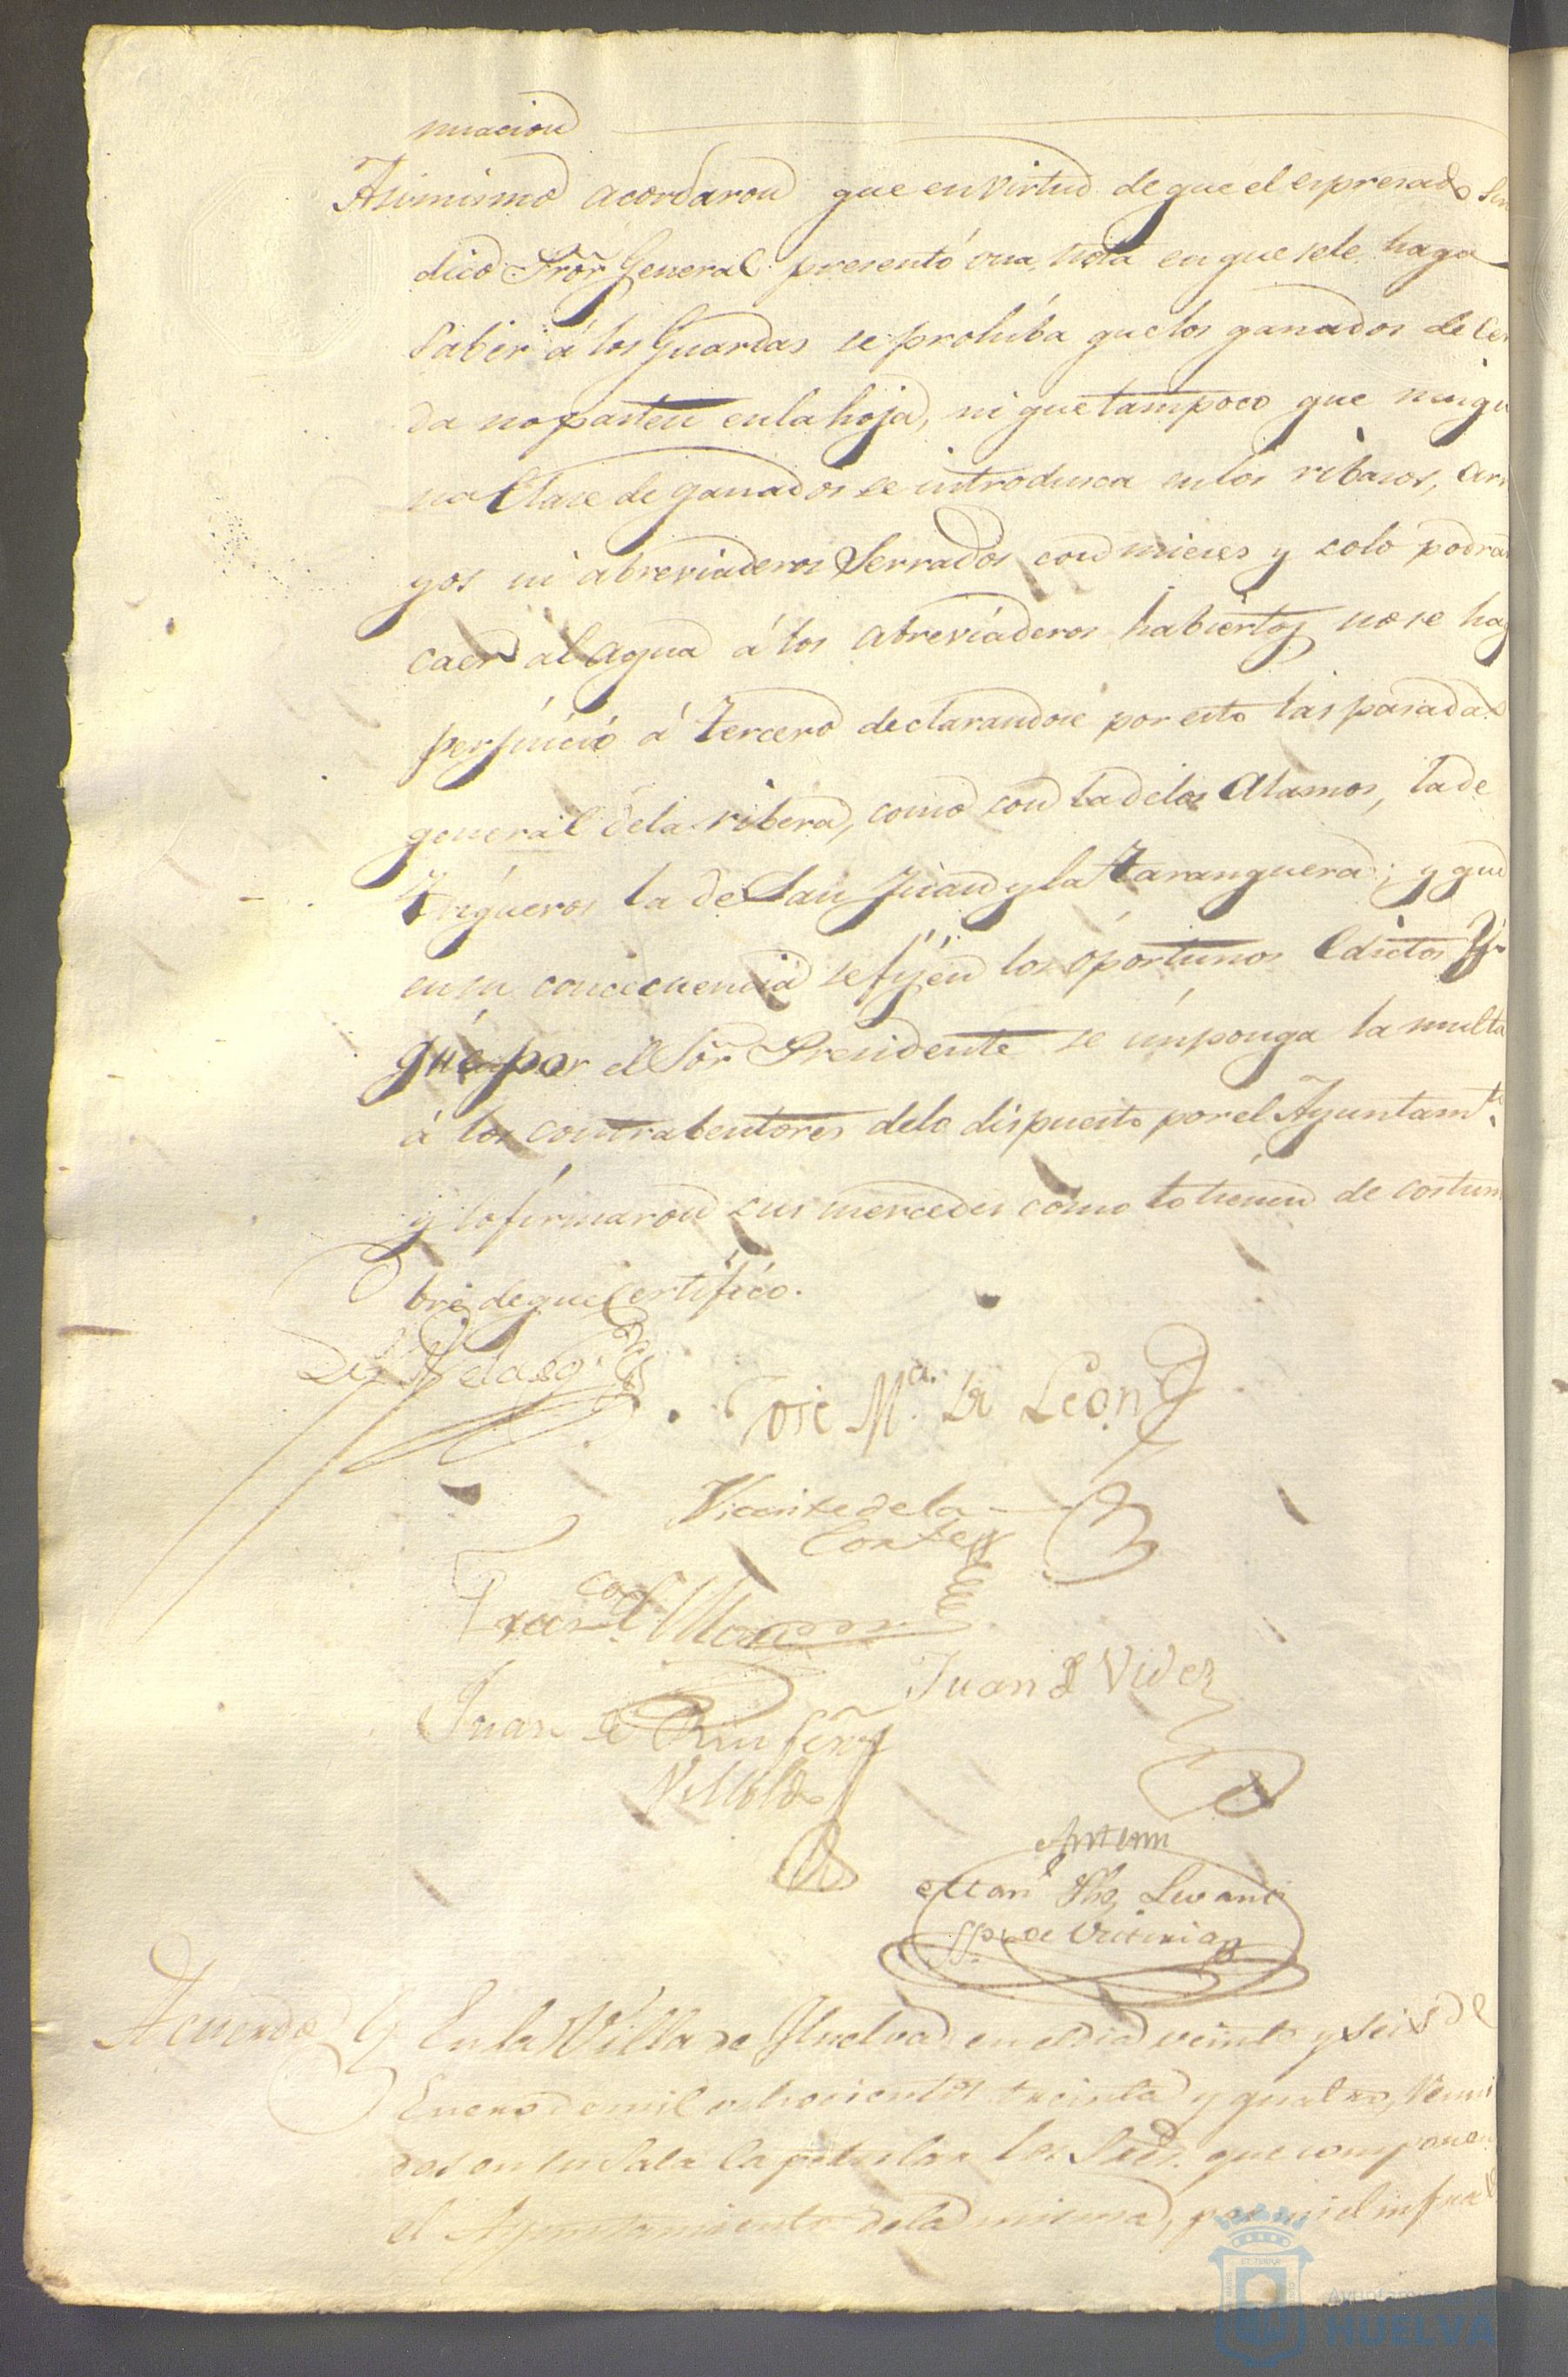 nuacion
Asimismo acordaron que en virtud de que el espresado Sin
dico Pror̃ General presentó una nota en que se le haga
Saber á los Guardas se prohiba que los ganados de Cer
da no pasten en la hoja, ni que tampoco que ningu
na Clase de ganados se introdusca en los ribasos, arr
yos ni abreviaderos Serrados con mieses y solo podran
caer al agua á los abreviaderos habiertos no se hag
perjuicio á tercero declarandose por esto las pasadas
general de la ribera, como son la de los Alamos, la de
Trigueros la de San Juan y la Taranguera; y que
en su concecuencia se fijen los oportunos Edictos Y
que por el Sor̃ Presidente se imponga la multa
á los contrabentores de lo dispuesto por el Ayuntamto.
y lo firmaron sus mercedes como lo tienen de costum
bre de que Certifico.
Velasqz
Jose Ma. de Leon
Vicente de la
Corte
Franco
Juan de Videz
Juan
Villoldo
Antemi
Manl
Acuerdo En la Villa de Huelva en el dia veinte y seis de
Enero de mil ochocientos treinta y quatro, Reuni
dos en su Sala Capitular los Sres. que componen
el Ayuntamiento de la misma, por mi el infras
Ayuntamiento
HUELVA